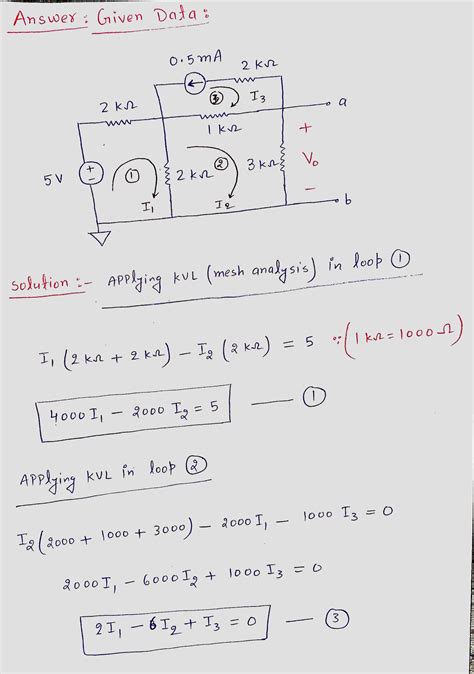 Answer : Given Data :
0.5mA
2 kΩ
③ I3
2 kΩ
1 kΩ
a
+
5V
+
-
①
2 kΩ
②
3 kΩ
Vo
I1
I2
-
b
Solution :- APPlying KVL (mesh analysis) in loop ①
I1 (2 kΩ + 2 kΩ) - I2 (2 kΩ) = 5 ∵ (1 kΩ = 1000 Ω)
4000 I1 - 2000 I2 = 5 — ①
APPlying KVL in loop ②
I2 (2000 + 1000 + 3000) - 2000 I1 - 1000 I3 = 0
2000 I1 - 6000 I2 + 1000 I3 = 0
2 I1 - 6 I2 + I3 = 0 — ③